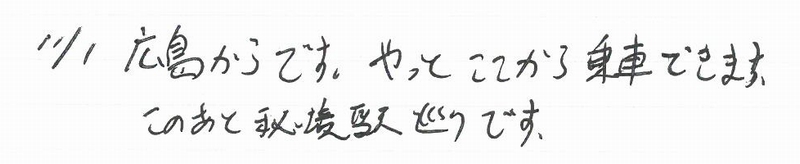 11/1 広島からです。やっとここから乗車できます。
このあと秘境駅巡りです。